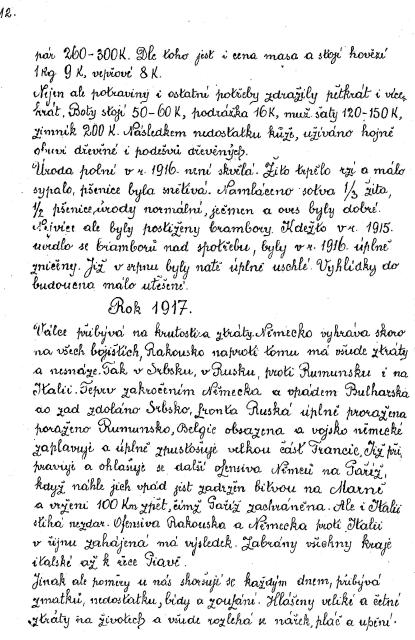 12.
pár 260-300K. Dle toho jest i cena masa a stojí hovězí
1 kg 9 K, vepřové 8 K.
Nejen ale potraviny i ostatní potřeby zdražily pětkrát i více-
krát. Boty stojí 50-60 K, podrážka 16 K, muž. šaty 120-150 K,
zimník 200 K. Následkem nedostatku kůže, užíváno hojně
obuvi dřevěné i podešví dřevěných.
Úroda polní v r. 1916. není skvělá. Žito trpělo rzí a málo
sypalo, pšenice byla snětivá. Namláceno sotva 1/3 žita,
1/2 pšenice, úrody normální, ječmen a oves byly dobré.
Nejvíce ale byly postiženy brambory. Kdežto v r. 1915.
urodilo se bramborů nad spotřebu, byly v r. 1916. úplně
zničeny. Již v srpnu byly natě úplně uschlé. Vyhlídky do
budoucna málo utěšené.
Rok 1917.
Válce přibývá na krutosti a ztráty. Německo vyhrává skoro
na všech bojištích, Rakousko naproti tomu má všude ztráty
a nesnáze. Tak v Srbsku, v Rusku, proti Rumunsku i na
Italii. Teprv zakročením Německa a vpádem Bulharska
ao zad zdoláno Srbsko, fronta Ruská úplně proražena
poraženo Rumunsko, Belgie obsazena a vojsko německé
zaplavuje a úplně zpustošuje velkou část Francie. Již při-
pravuje a ohlašuje se další ofensiva Němců na Paříž,
když náhle jich vpád jest zadržen bitvou na Marně
a vrženi 100 Km zpět, čímž Paříž zachráněna. Ale i Italii
stihá nezdar. Ofensiva Rakouska a Německa proti Italii
v říjnu zahájená má výsledek. Zabrány všechny kraje
italské až k řece Piavě.
Jinak ale poměry u nás zhoršují se každým dnem, přibývá
zmatků, nedostatku, bídy a zoufání. Hlášeny veliké a četné
ztráty na životech a všude rozléhá se nářek, pláč a úpění.